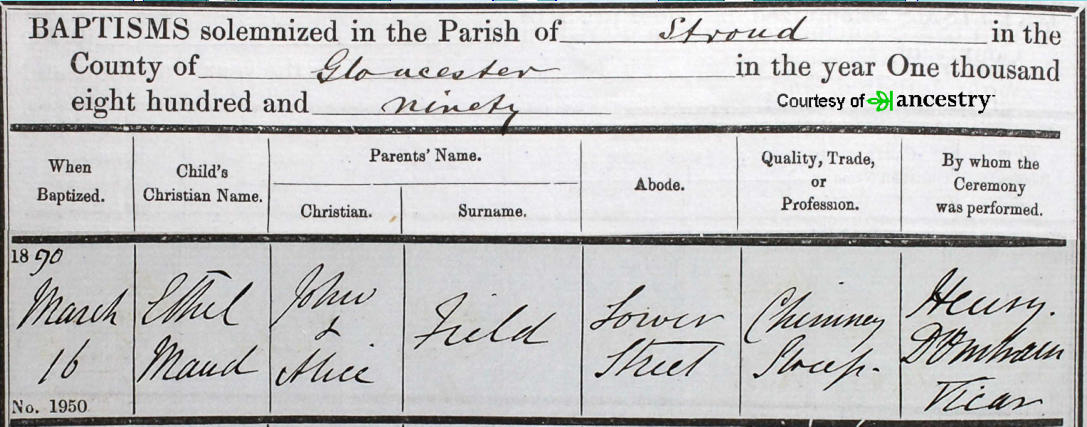 BAPTISMS solemnized in the Parish of Stroud in the
County of Gloucester in the year One thousand
eight hundred and ninety
Courtesy of ancestry
When
Baptized.
Child's
Christian Name.
Parents' Name.
Christian.
Surname.
Abode.
Quality, Trade,
or
Profession.
By whom the
Ceremony
was performed.
1890
March
16
No. 1950
Ethel
Maud
John
&
Alice
Field
Lower
Street
Chimney
Sweep.
Henry.
Vicar